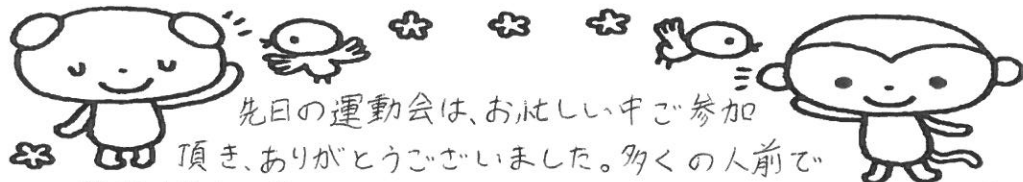 先日の運動会は、お忙しい中ご参加
頂き、ありがとうございました。多くの人前で